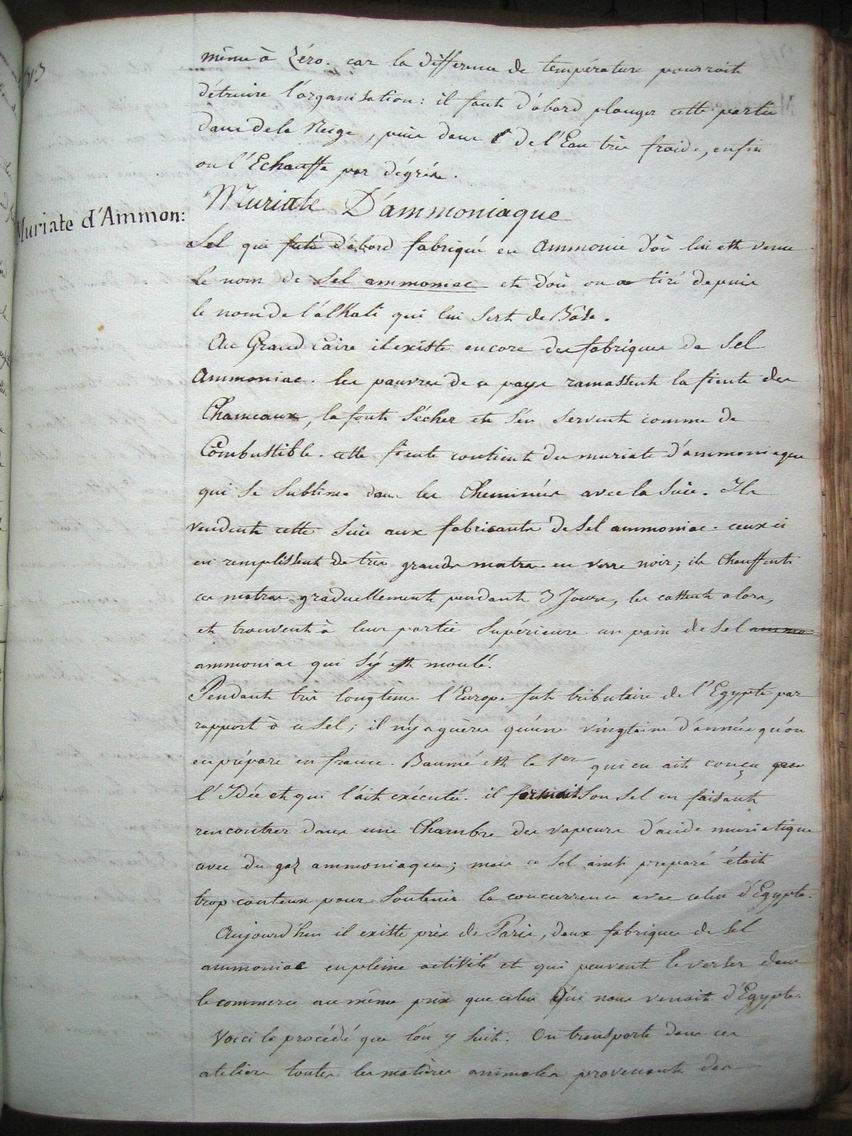 même à Zéro. car la difference de température pourroit
détruire l'organisation: il faut d'abord plonger cette partie
dans de la Neige, puis dans de l'Eau très froide, enfin
on l'Echauffe par dégrés.
Muriate d'Ammon:
Muriate D'ammoniaque
Sel qui fut d'abord fabriqué en Ammonie d'où lui est venu
le nom de Sel ammoniac et d'où on a tiré depuis
le nom de l'alkali qui lui sert de Base.
Au Grand Caire il existe encore des fabriques de Sel
Ammoniac. les pauvres de ce pays ramassent la fiente des
Chameaux, la font sécher et s'en servent comme de
Combustible. cette fiente contient du muriate d'ammoniaque
qui se sublime dans les Cheminées avec la Suie. Ils
vendent cette Suie aux fabricants de Sel ammoniac. ceux ci
en remplissent de très grands matras en verre noir; ils chauffent
ces matras graduellement pendant 3 Jours, les cassent alors,
et trouvent à leur partie Supérieure un pain de Sel ammo-
ammoniac qui s'y est moulé.
Pendant très longtems l'Europe fut tributaire de l'Egypte par
rapport à ce Sel; il n'y a guères qu'une vingtaine d'années qu'on
en prépare en france. Baumé est le 1er qui en ait conçu
l'Idée et qui l'ait exécuté. il formait Son Sel en faisant
rencontrer dans une Chambre des vapeurs d'acide muriatique
avec du gaz ammoniaque; mais ce Sel ainsi preparé était
trop couteux pour Soutenir la concurrence avec celui d'Egypte.
Aujourd'hui il existe près de Paris, deux fabriques de Sel
ammoniac en pleine activité et qui peuvent le verser dans
le commerce au même prix que celui Qui nous venoit d'Egypte.
Voici le procédé que l'on y suit. On transporte dans ces
ateliers toutes les matières animales provenant des